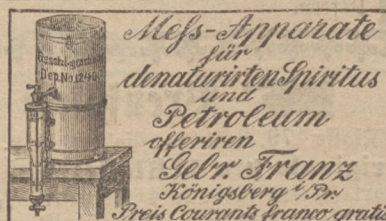 Reichsgesetzl.
Dep. No. 1240
Mess-Apparate
für
denaturirten Spiritus
und
Petroleum
offeriren
Gebr. Franz
Königsberg i/Pr.
Preis Courants franco gratis